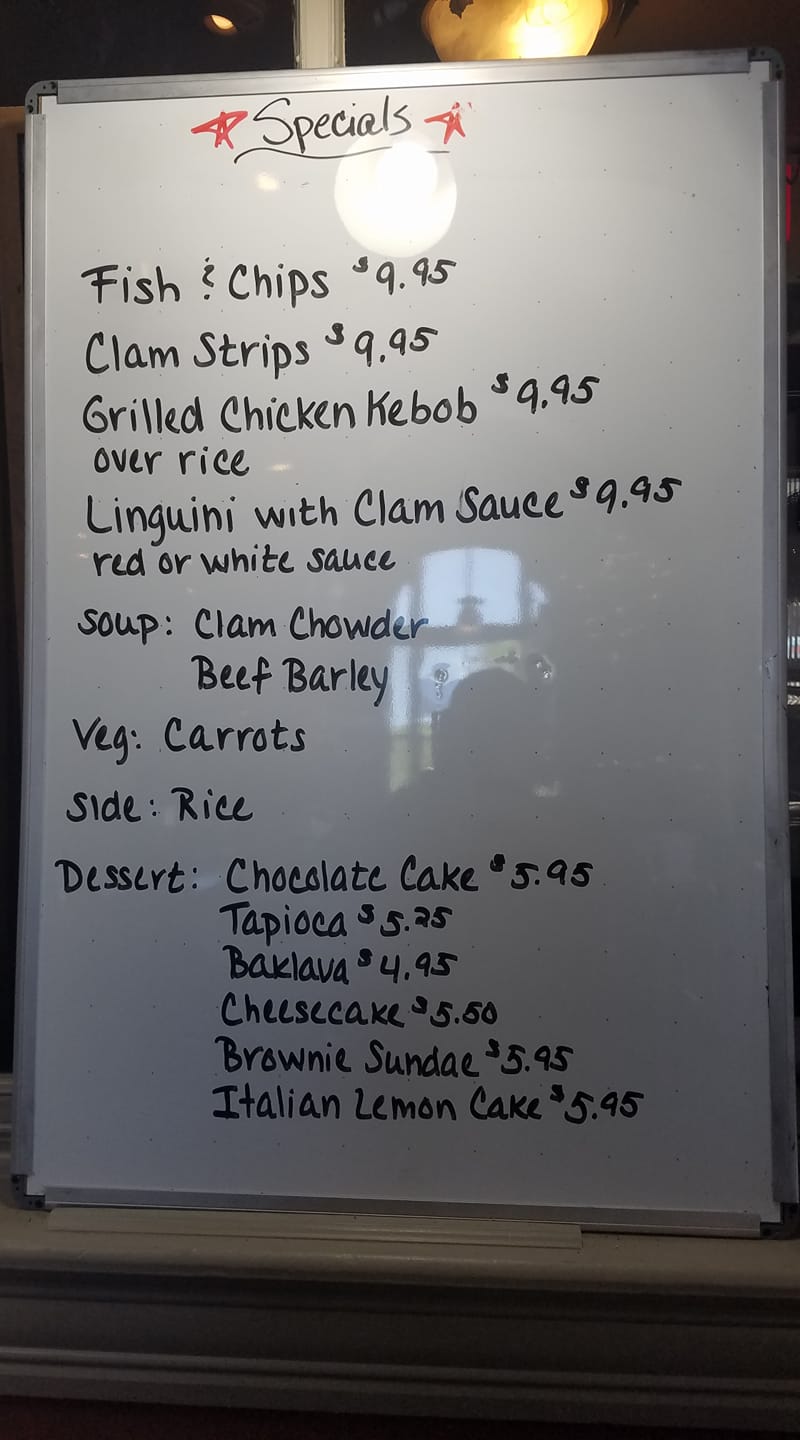 Specials
Fish & Chips $9.95
Clam Strips $9.95
Grilled Chicken Kebob $9.95
over rice
Linguini with Clam Sauce $9.95
red or white sauce
Soup: Clam Chowder
Beef Barley
Veg: Carrots
Side: Rice
Dessert: Chocolate Cake $5.95
Tapioca $5.25
Baklava $4.95
Cheesecake $5.50
Brownie Sundae $5.95
Italian Lemon Cake $5.95